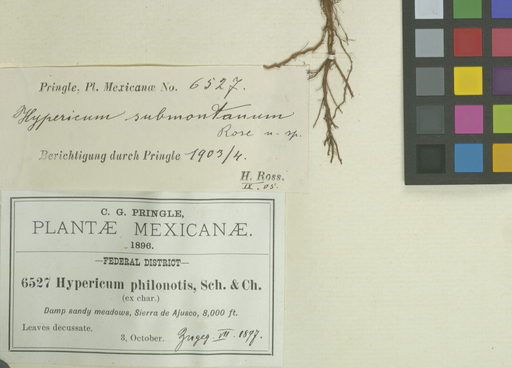 Pringle, Pl. Mexicanæ No. 6527.
Hypericum submontanum
Rose n. sp.
Berichtigung durch Pringle 1903/4.
H. Ross.
IX. 05.
C. G. PRINGLE,
PLANTÆ MEXICANÆ.
1896.
—FEDERAL DISTRICT—
6527 Hypericum philonotis, Sch. & Ch.
(ex char.)
Damp sandy meadows, Sierra de Ajusco, 8,000 ft.
Leaves decussate.
3, October. VII. 1897.